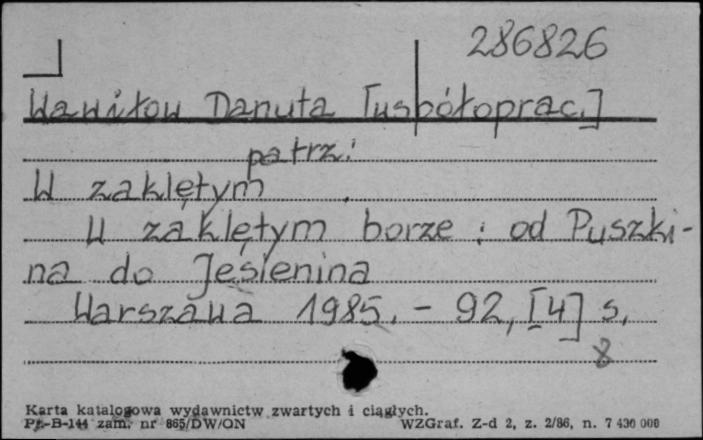 286826
Wawiłow Danuta [współoprac.]
patrz:
W zaklętym
W zaklętym borze : od Puszki-
na do Jesienina
Warszawa 1985. - 92, [4] s.
8
Karta katalogowa wydawnictw zwartych i ciągłych.
Pz.-B-144 zam. nr 865/DW/ON WZGraf. Z-d 2, z. 2/86, n. 7 430 000